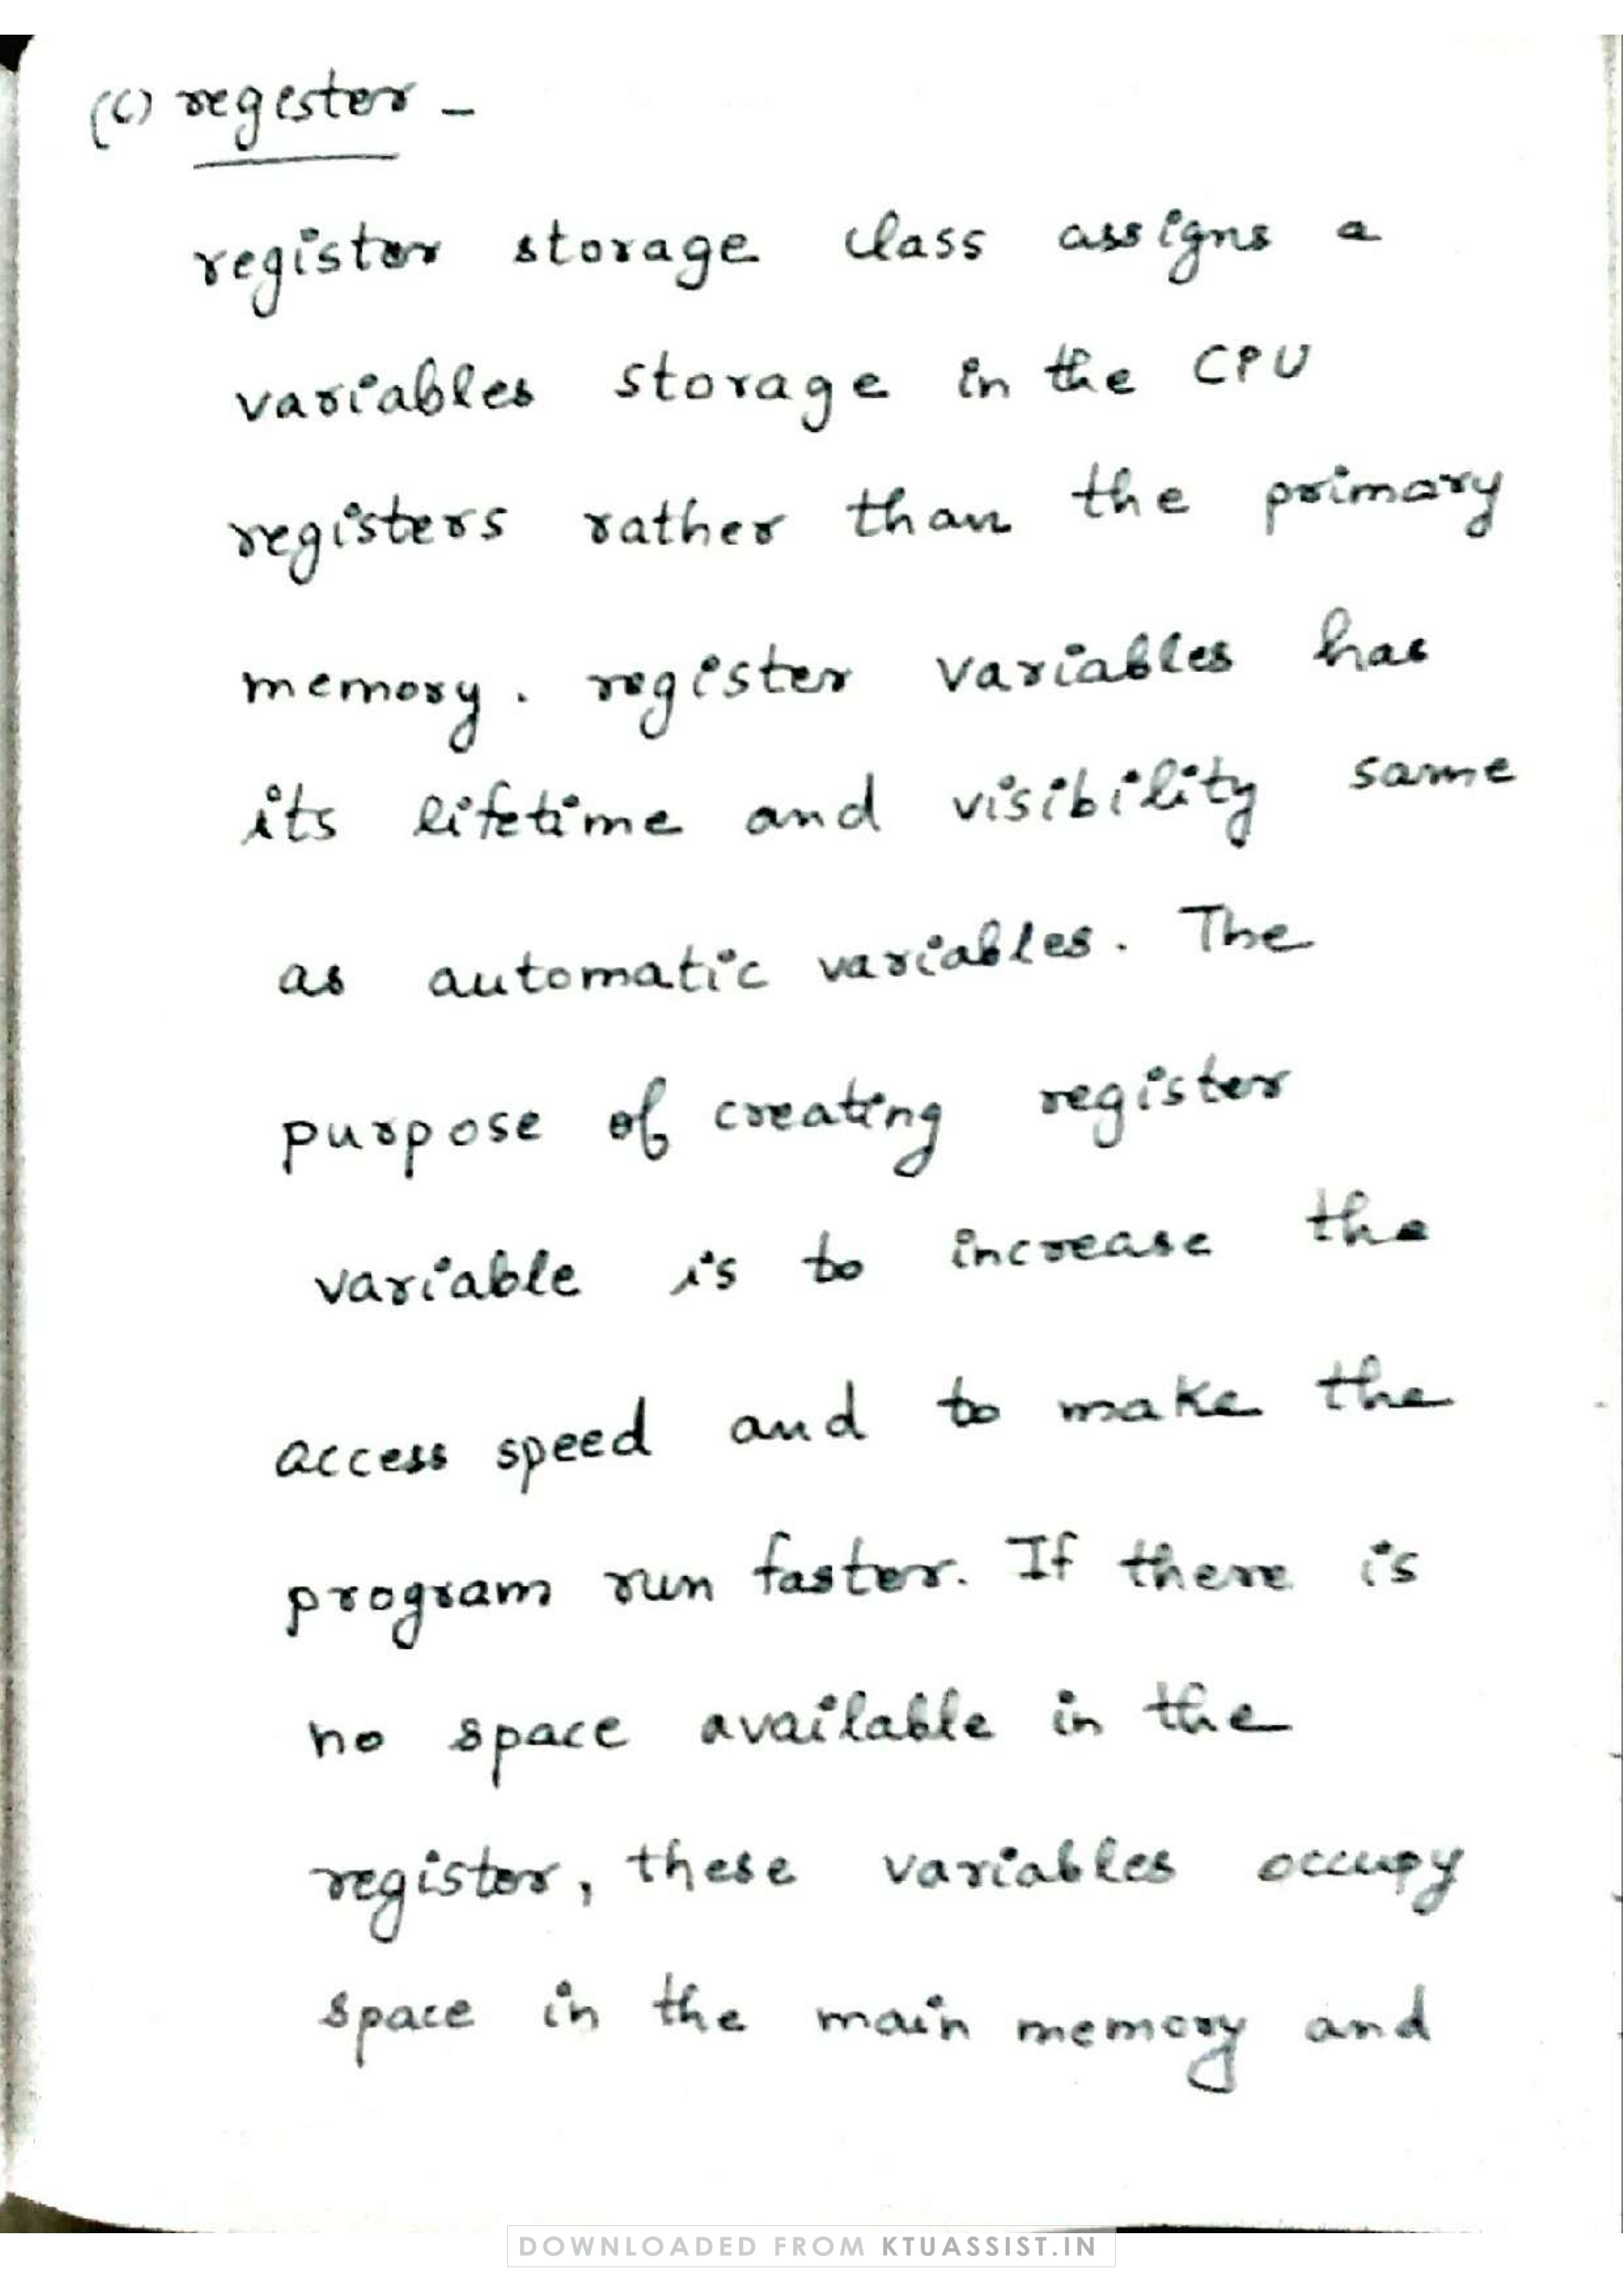 (c) register -
register storage class assigns a
variables storage in the CPU
registers rather than the primary
memory. register variables has
its lifetime and visibility same
as automatic variables. The
purpose of creating register
variable is to increase the
access speed and to make the
program run faster. If there is
no space available in the
register, these variables occupy
space in the main memory and
DOWNLOADED FROM KTUASSIST.IN